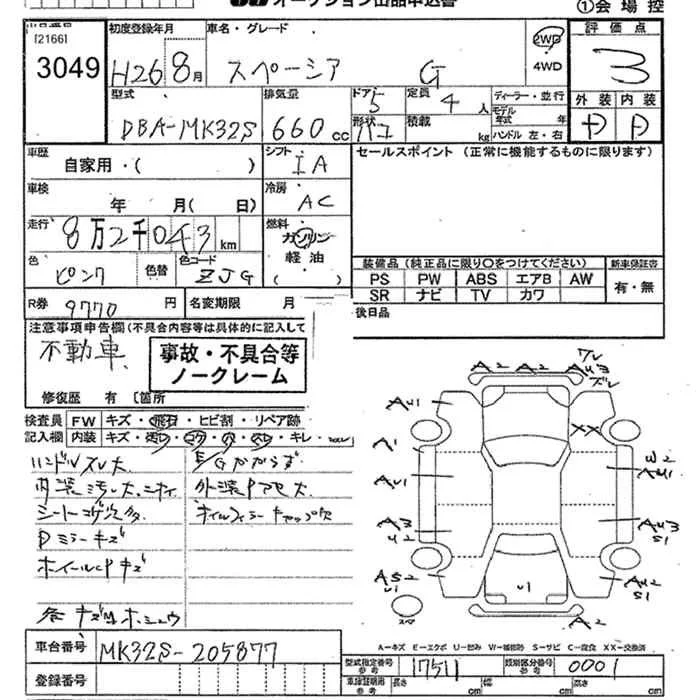 オークション出品申込書
①会場控
[2166]
3049
初度登録年月
H26 8月
車名・グレード
スペーシア G
2WD
4WD
評価点
3
外装 内装
D D
型式
DBA-MK32S
排気量
660 cc
ドア
5
形状
バコ
定員
4 人
積載 kg
ディーラー・並行
モデル年式 年
ハンドル 左・右
車歴
自家用・( )
シフト
IA
セールスポイント (正常に機能するものに限ります)
車検
年 月( 日)
冷房
AC
走行
8万2千043 km
燃料
ガソリン
軽油
( )
色
ピンク
色替
色コード
ZJG
装備品 (純正品に限り○をつけてください)
新車保証書
PS PW ABS エアB AW
SR ナビ TV カワ
有・無
R券 9770 円
名変期限 月
後日品
注意事項申告欄(不具合内容等は具体的に記入して
不動車
事故・不具合等
ノークレーム
修復歴 有 〔箇所
検査員
記入欄
FW キズ・飛石・ヒビ割・リペア跡
内装 キズ・汚レ・コゲ・穴・スレ・キレ・
ハンドルスレ大
E/Gかからず
内装汚レ大、ニオイ
外装P
シートコゲ穴多
Dミラーキズ
ホイールCPキズ
各キズ凹ホシュウ
A2 A2 AU3
AU1
A1
AU1
A3
U2
AS2
U1
XX
W2
AU1
AU3
S1
AU2
S1
U1
A2
スペア
A-キズ E-エクボ U-凹み W-補修跡 S-サビ C-腐食 XX-交換済
車台番号 MK32S-205877
登録番号
型式指定番号 参考 17511
類別区分番号 参考 0001
車庫証明用 参考 長さ cm 幅 cm 高さ cm